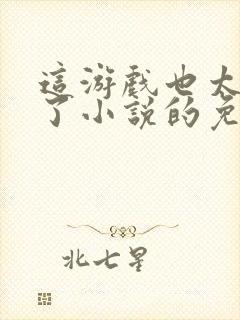 這游戲也太
了小說的免
北七星